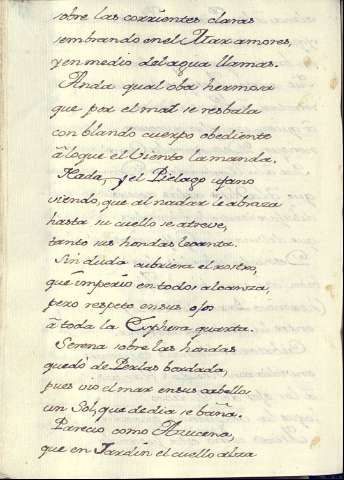 sobre las corrientes claras
sembrando en el Mar amores,
y en medio del agua llamas.
Anda qual oba hermosa
que por el mar se resbala
con blando cuerpo obediente
à lo que el viento la manda.
Nada, y el Pielago ufano
viendo, que al nadar le abraza
hasta su cuello se atreve,
tanto sus hondas levanta.
Sin duda cubriera el rostro,
que imperio en todos alcanza,
pero respeto en sus ojos
à toda la Esphera quarta.
Serena sobre las hondas
quedó de Perlas bordada,
pues vio el mar en su cabello
un Sol, que de dia se baña.
Parecio como Azucena,
que en Jardin el cuello alza